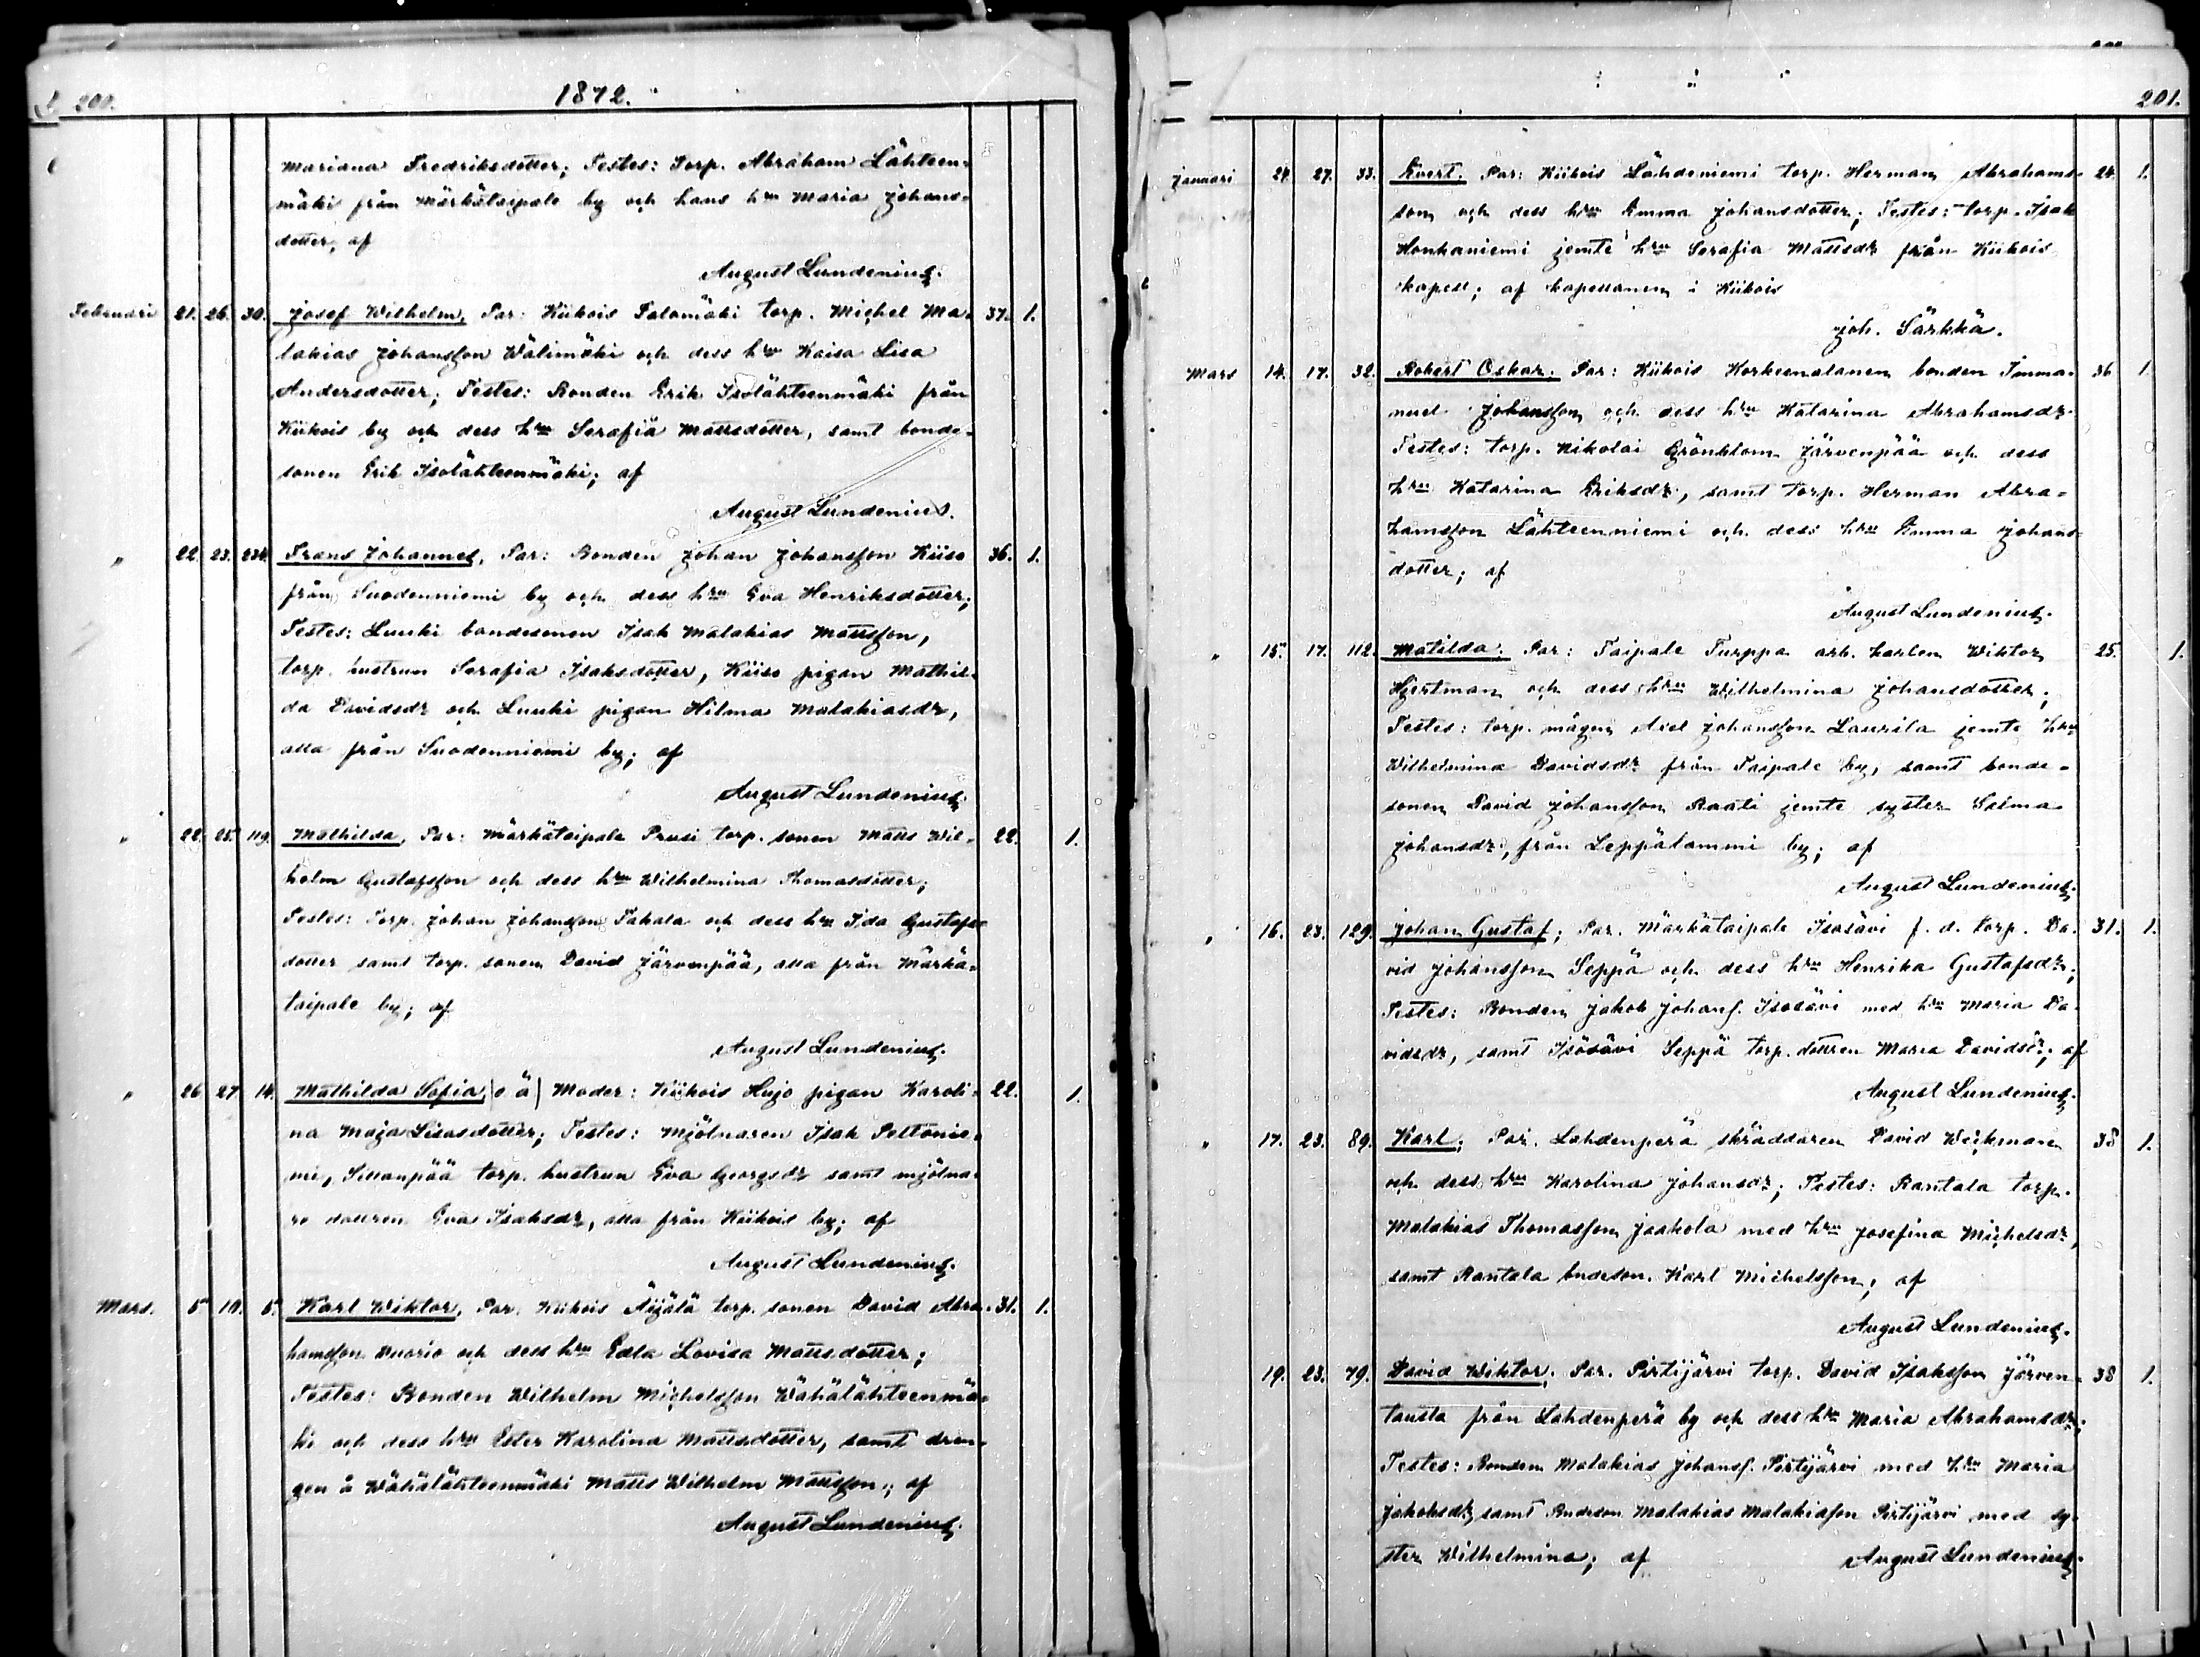 200.
1872.
Mariana Fredriksdotter; Testes: Torp. Abraham Lähteen-
mäki från Märkätaipale by och hans hru Maria Johans-
dotter, af
August Lundenius.
Februari 21. 26. 30. Josef Wilhelm, Par: Kiikois Palomäki torp. Michel Ma- 37. 1.
lakias Johansson Wälimäki och dess hru Kaisa Lisa
Andersdotter; Testes: Bonden Erik Isolähteenmäki från
Kiikois by och dess hru Serafia Mattsdotter, samt bonde-
sonen Erik Isolähteenmäki; af
August Lundenius.
" 22. 23. 234. Frans Johannes, Par: Bonden Johan Johansson Kiiso 36. 1.
från Suodenniemi by och dess hru Eva Henriksdotter;
Testes: Luuki bondesonen Isak Malakias Mattsson,
torp. hustrun Serafia Isaksdotter, Kiiso pigan Mathil-
da Davidsdr och Luuki pigan Hilma Malakiasdr,
alla från Suodenniemi by; af
August Lundenius.
" 22. 25. 119. Mathilda, Par: Märkätaipale Prusi torp. sonen Matts Wil- 22. 1.
helm Gustafsson och dess hru Wilhelmina Thomasdotter;
Testes: Torp. Johan Johansson Takala och dess hru Ida Gustafs-
dotter samt torp. sonen David Järvenpää, alla från Märkä-
taipale by; af
August Lundenius.
" 26 27. 14. Mathilda Sofia, (o ä) Moder: Kiikois Hujo pigan Karoli- 22. 1.
na Maja Lisasdotter; Testes: Mjölnaren Isak Peltonie-
mi, Sillanpää torp. hustrun Eva Georgsdr samt mjölna-
re dottren Eva Isaksdr, alla från Kiikois by; af
August Lundenius.
Mars. 5 10. 5. Karl Wiktor, Par: Kiikois Äijälä torp. sonen David Abra- 31. 1.
hamsson Vuorio och dess hru Edla Lovisa Mattsdotter;
Testes: Bonden Wilhelm Michelsson Wähälähteenmä-
ki och dess hru Ester Karolina Mattsdotter, samt drän-
gen å Wähälähteenmäki Matts Wilhelm Mattsson; af
August Lundenius.
201.
Januari 24. 27. 33. Evert; Par: Kiikois Lähdeniemi torp. Herman Abrahams- 24. 1.
son och dess hru Emma Johansdotter; Testes: torp. Isak
Honkaniemi jemte hru Serafia Mattsdr från Kiikois
kapell; af kapellanen i Kiikois
Joh. Särkkä.
Mars 14. 17. 32. Robert Oskar; Par: Kiikois Korkeenalanen bonden Imma- 36 1.
nuel Johansson och dess hru Katarina Abrahamsdr
Testes: torp. Nikolai Grönblom Järvenpää och dess
hru Katarina Eriksdr, samt torp. Herman Abra-
hamsson Lähteenniemi och dess hru Emma Johans-
dotter; af
August Lundenius.
" 15. 17. 112. Matilda; Par: Taipale Turppa arb. karlen Wiktor 25. 1.
Hjertman och dess hru Wilhelmina Johansdotter;
Testes: torp. mågen Axel Johansson Laurila jemte hru
Wilhelmina Davidsdr från Taipale by, samt bonde-
sonen David Johansson Raati jemte syster Selma
Johansdr, från Leppälammi by; af
August Lundenius.
" 16. 23. 129. Johan Gustaf; Par. Märkätaipale Isosävi f. d. torp. Da- 31. 1.
vid Johansson Seppä och dess hru Henrika Gustafsdr;
Testes: Bonden Jakob Johans. Isosävi med hru Maria Da-
vidsdr, samt Isosävi Seppä torp. dottren Maria Davidsdr; af
August Lundenius.
" 17. 23. 89. Karl; Par. Lahdenperä skräddaren David Weikman 38 1.
och dess hru Karolina Johansdr; Testes: Rantala torp.
Malakias Thomasson Jaakola med hru Josefina Michelsdr,
samt Rantala bndeson. Karl Michelsson; af
August Lundenius.
19. 23. 79. David Wiktor; Par. Pirtijärvi torp. David Isaksson Järven- 38 1.
tausta från Lahdenperä by och dess hru Maria Abrahamsdr;
Testes: Bonden Malakias Johans. Pirtijärvi med hru Maria
Jakobsdr, samt Bndeson Malakias Malakiasson Pirtijärvi med sy-
ster Wilhelmina; af August Lundenius.